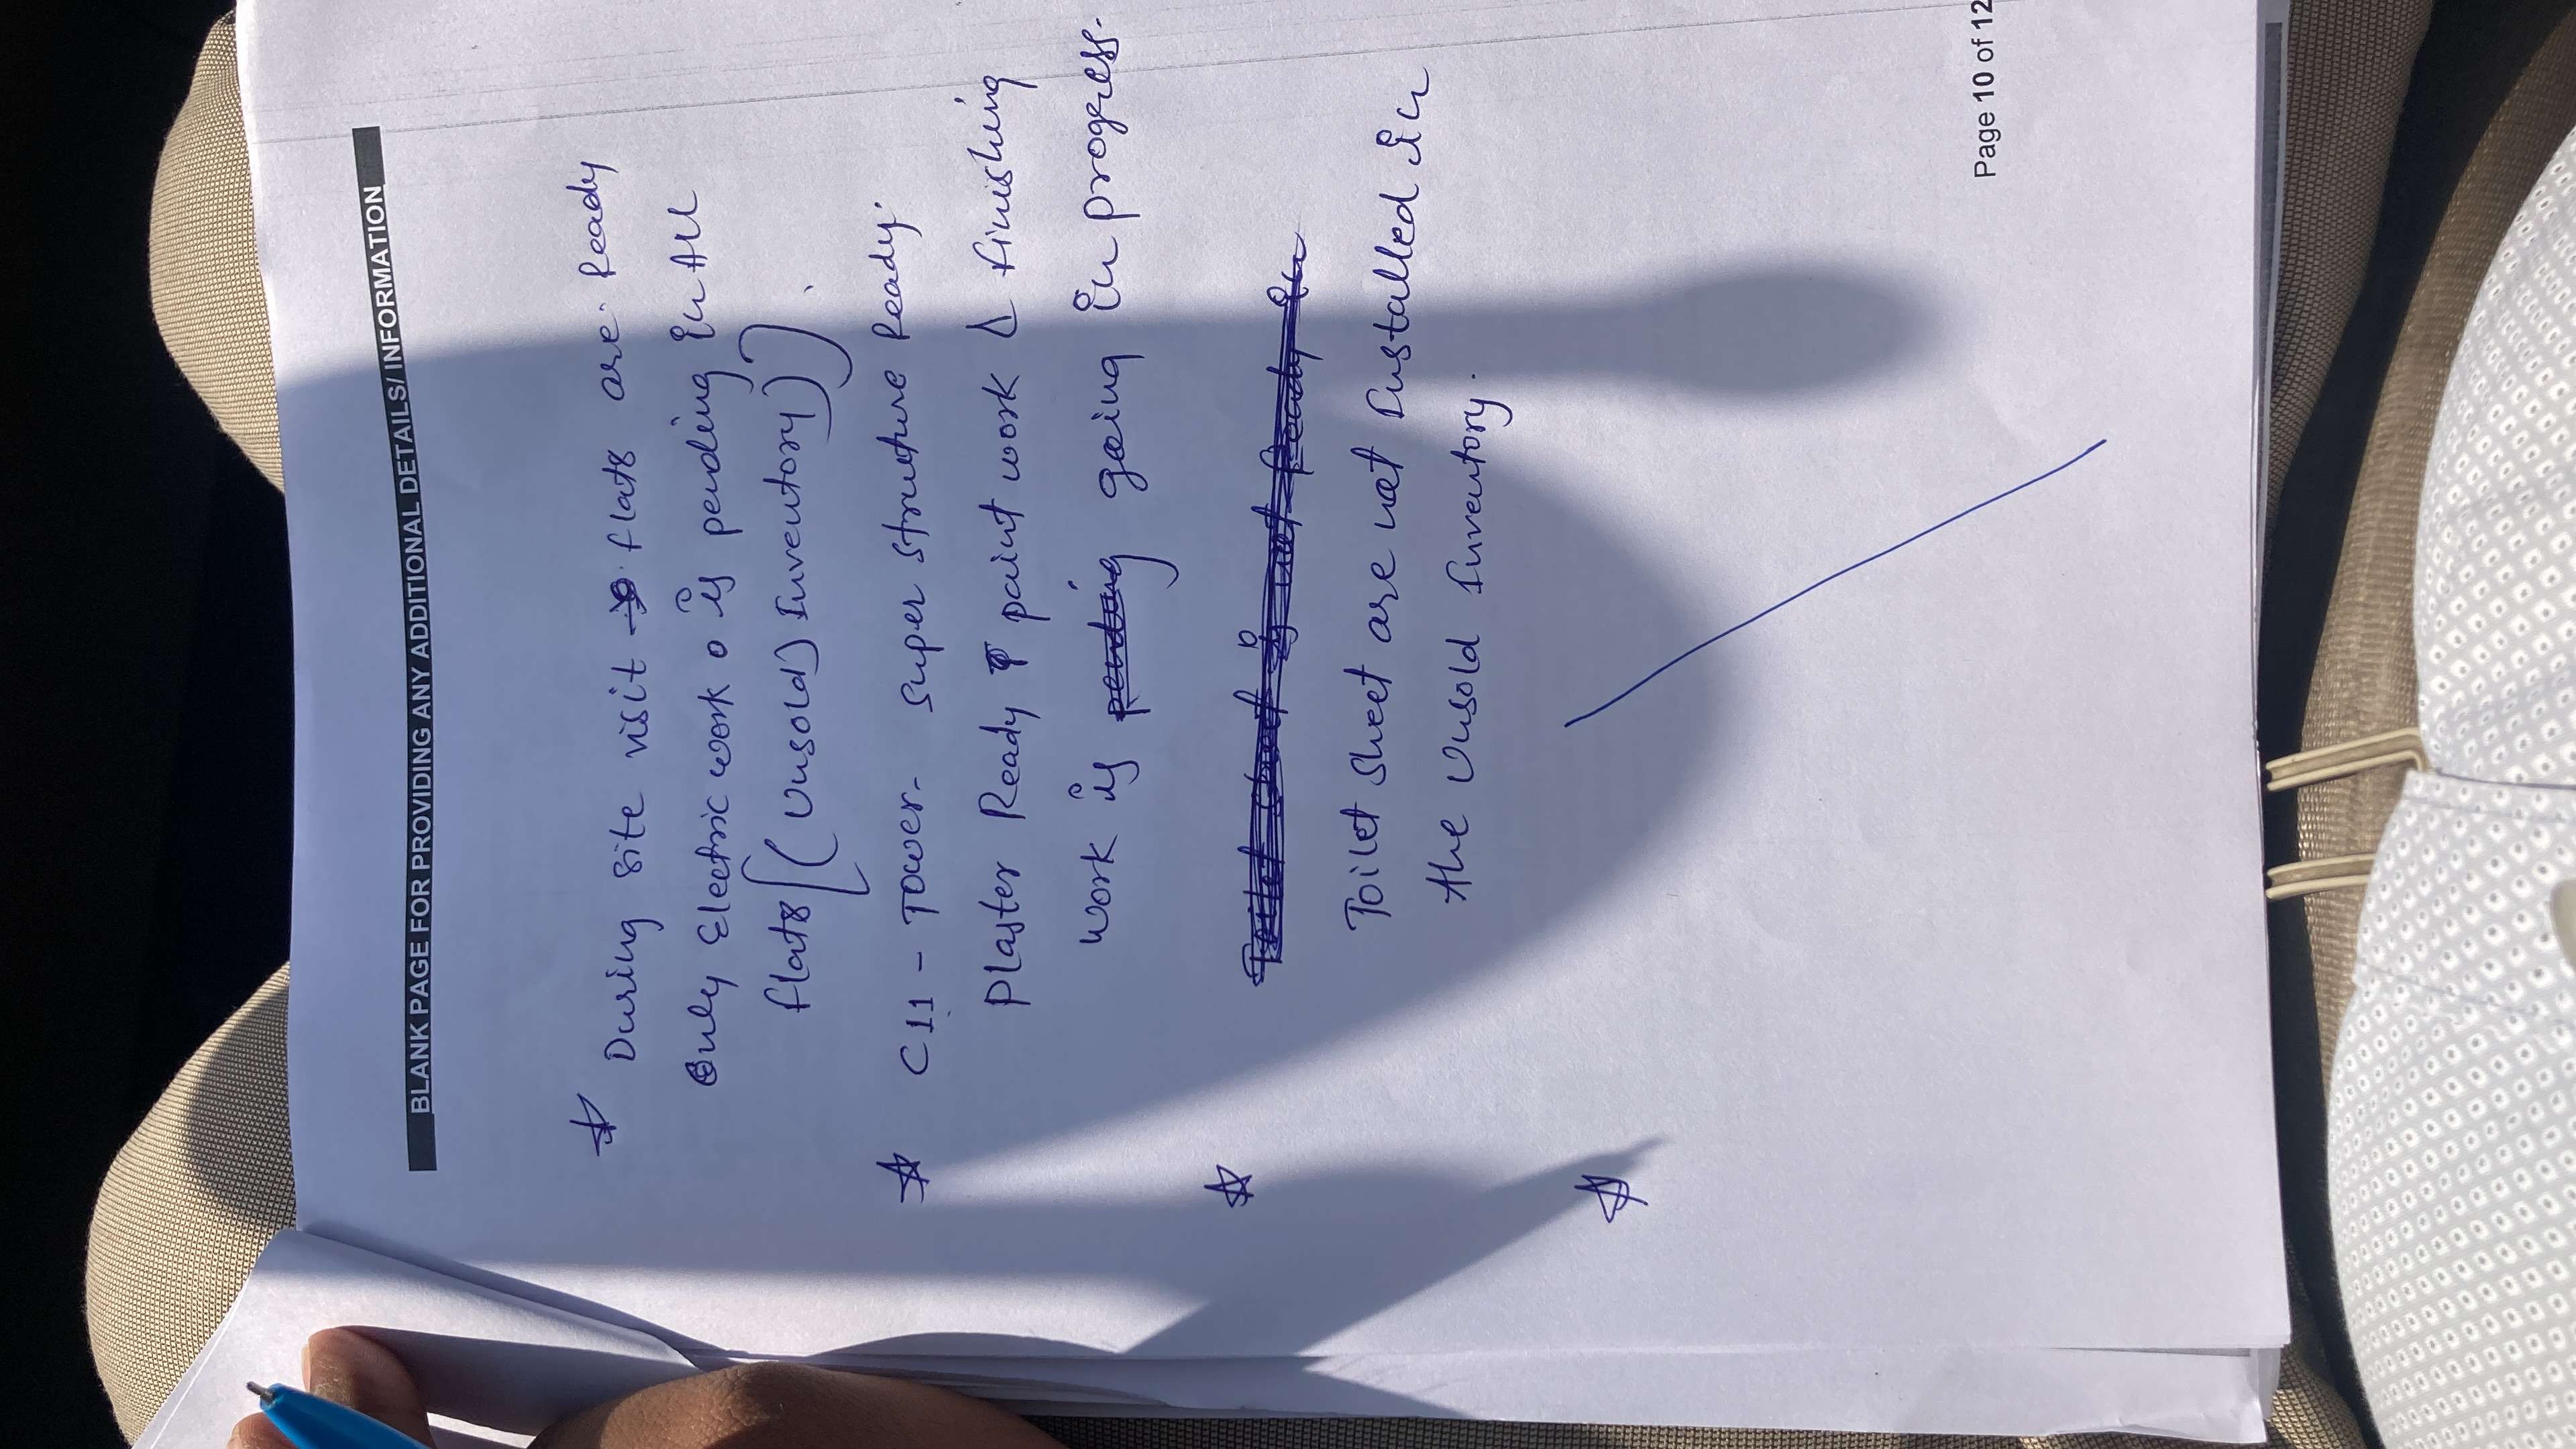 BLANK PAGE FOR PROVIDING ANY ADDITIONAL DETAILS/ INFORMATION
During site visit flats are Ready
Only Electric work is pending in All
flats [(Unsold) Inventory)]
C11 - Tower. Super Structure Ready.
Plaster Ready paint work & finishing
work is pending going in progress.
Toilet Sheet are not Installed in
the Unsold Inventory.
Page 10 of 12